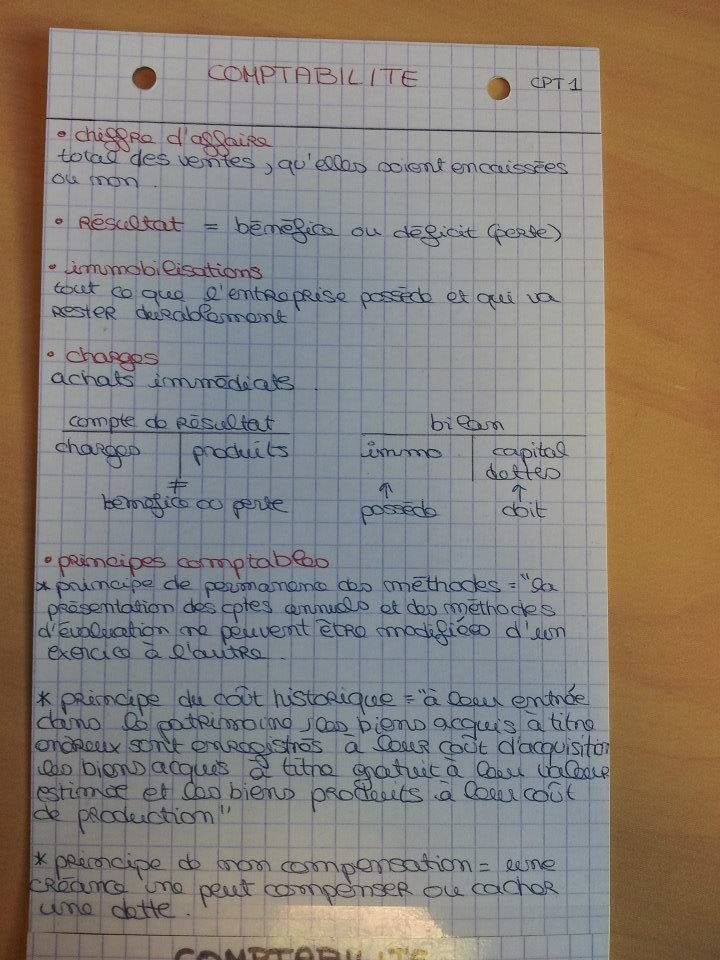 COMPTABILITE
CPT1
• chiffre d'affaire
total des ventes, qu'elles soient encaissées
ou non.
• Résultat = bénéfice ou déficit (perte)
• immobilisations
tout ce que l'entreprise possède et qui va
rester durablement
• charges
achats immédiats.
compte de résultat
charges | produits
≠
bénéfice ou perte
bilan
immo | capital
dettes
↑ ↑
possède doit
• principes comptables
* principe de permanence des méthodes = "la
présentation des cptes annuels et des méthodes
d'évaluation ne peuvent être modifiées d'un
exercice à l'autre.
* principe du coût historique = "à leur entrée
dans le patrimoine, les biens acquis à titre
onéreux sont enregistrés à leur coût d'acquisition
les biens acquis à titre gratuit à leur valeur
estimée et les biens produits à leur coût
de production"
* principe de non compensation = une
créance ne peut compenser ou cacher
une dette.
COMPTABILITE